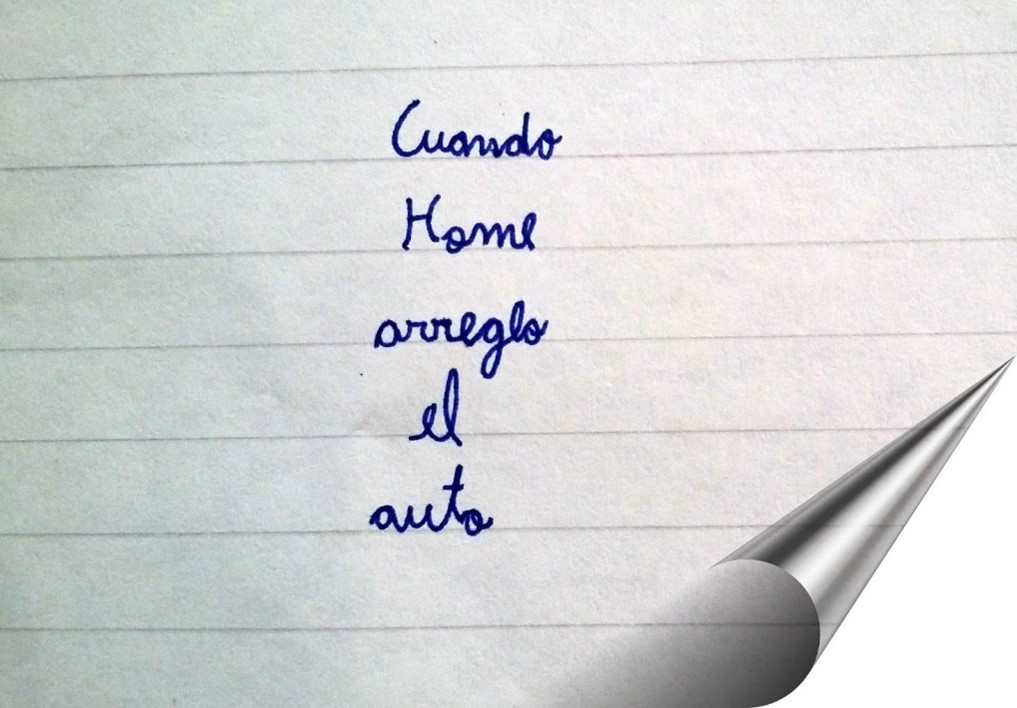 Cuando
Home
arreglo
el
auto